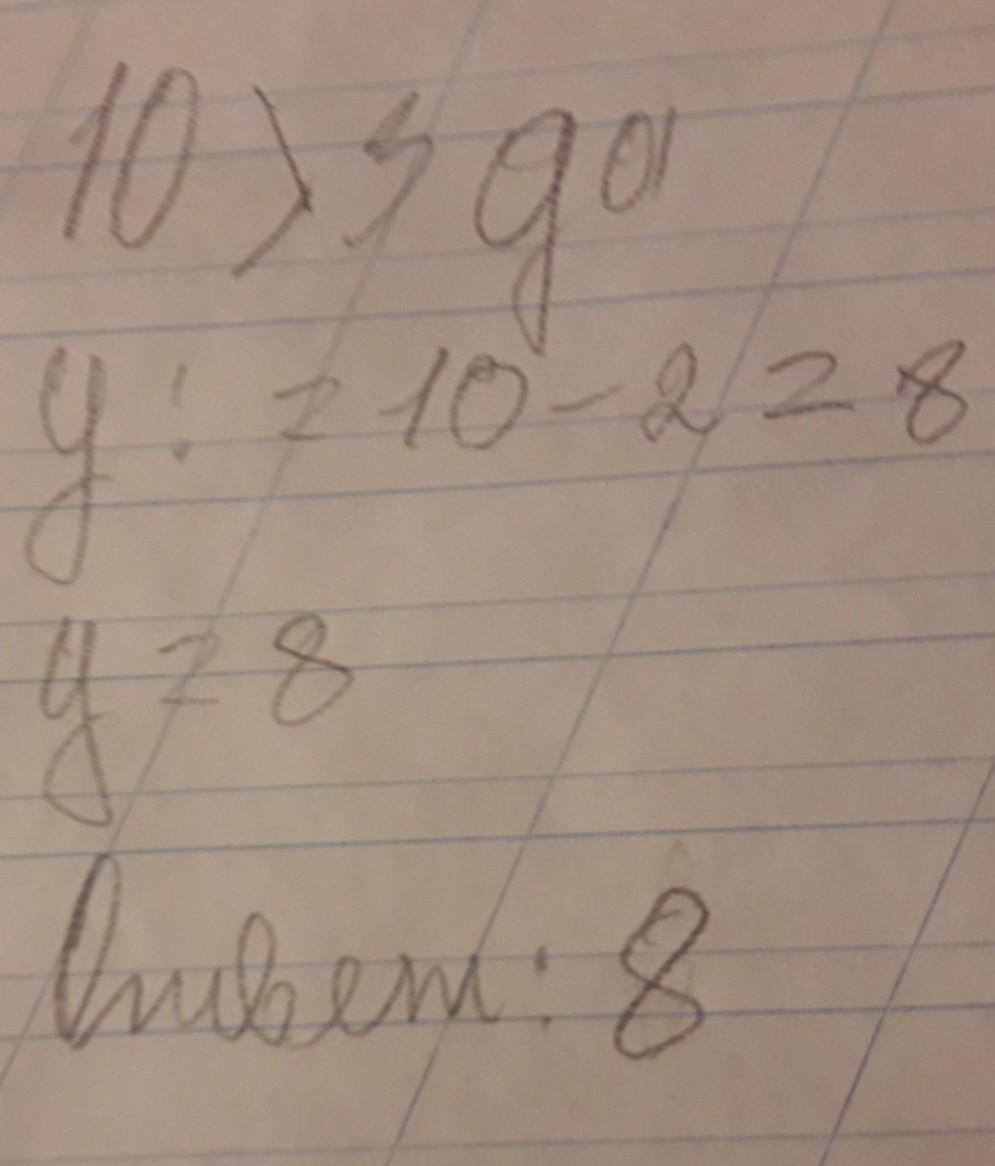 10 > 3 да
y := 10 - 2 = 8
y = 8
Ответ: 8